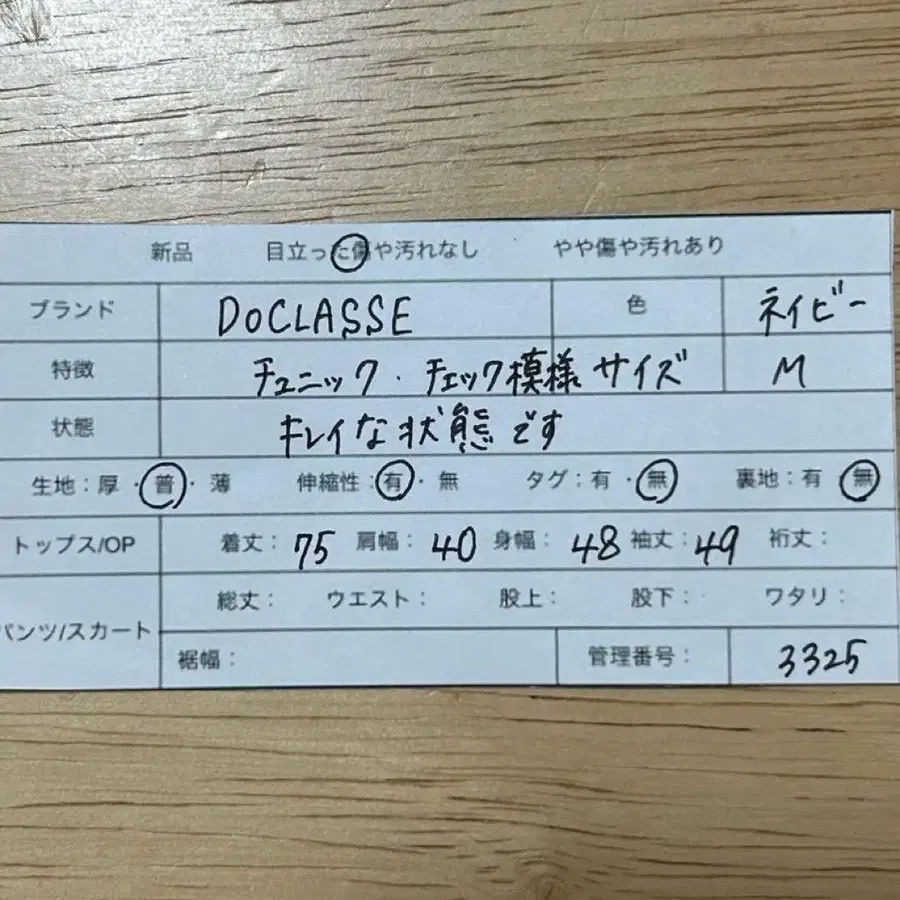 新品 目立った傷や汚れなし やや傷や汚れあり
ブランド DoCLASSE 色 ネイビー
特徴 チュニック・チェック模様 サイズ M
状態 キレイな状態です
生地：厚・普・薄 伸縮性：有・無 タグ：有・無 裏地：有・無
トップス/OP 着丈：75 肩幅：40 身幅：48 袖丈：49 裄丈：
パンツ/スカート 総丈： ウエスト： 股上： 股下： ワタリ：
裾幅： 管理番号： 3325